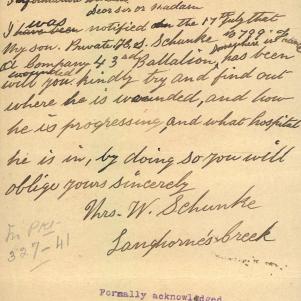 Dear Sir or Madam
I was
I have been notified on the 17 July that
My son. Private H. S. Schunke No 799 of
A Company 43rd Battalion, has been
wounded
will you kindly try and find out
where he is wounded, and how
he is progressing, and what hospital
he is in, by doing so you will
oblige yours sincerely
Mrs. W. Schunke
Langhorne's Creek
327-41
Formally acknowledged